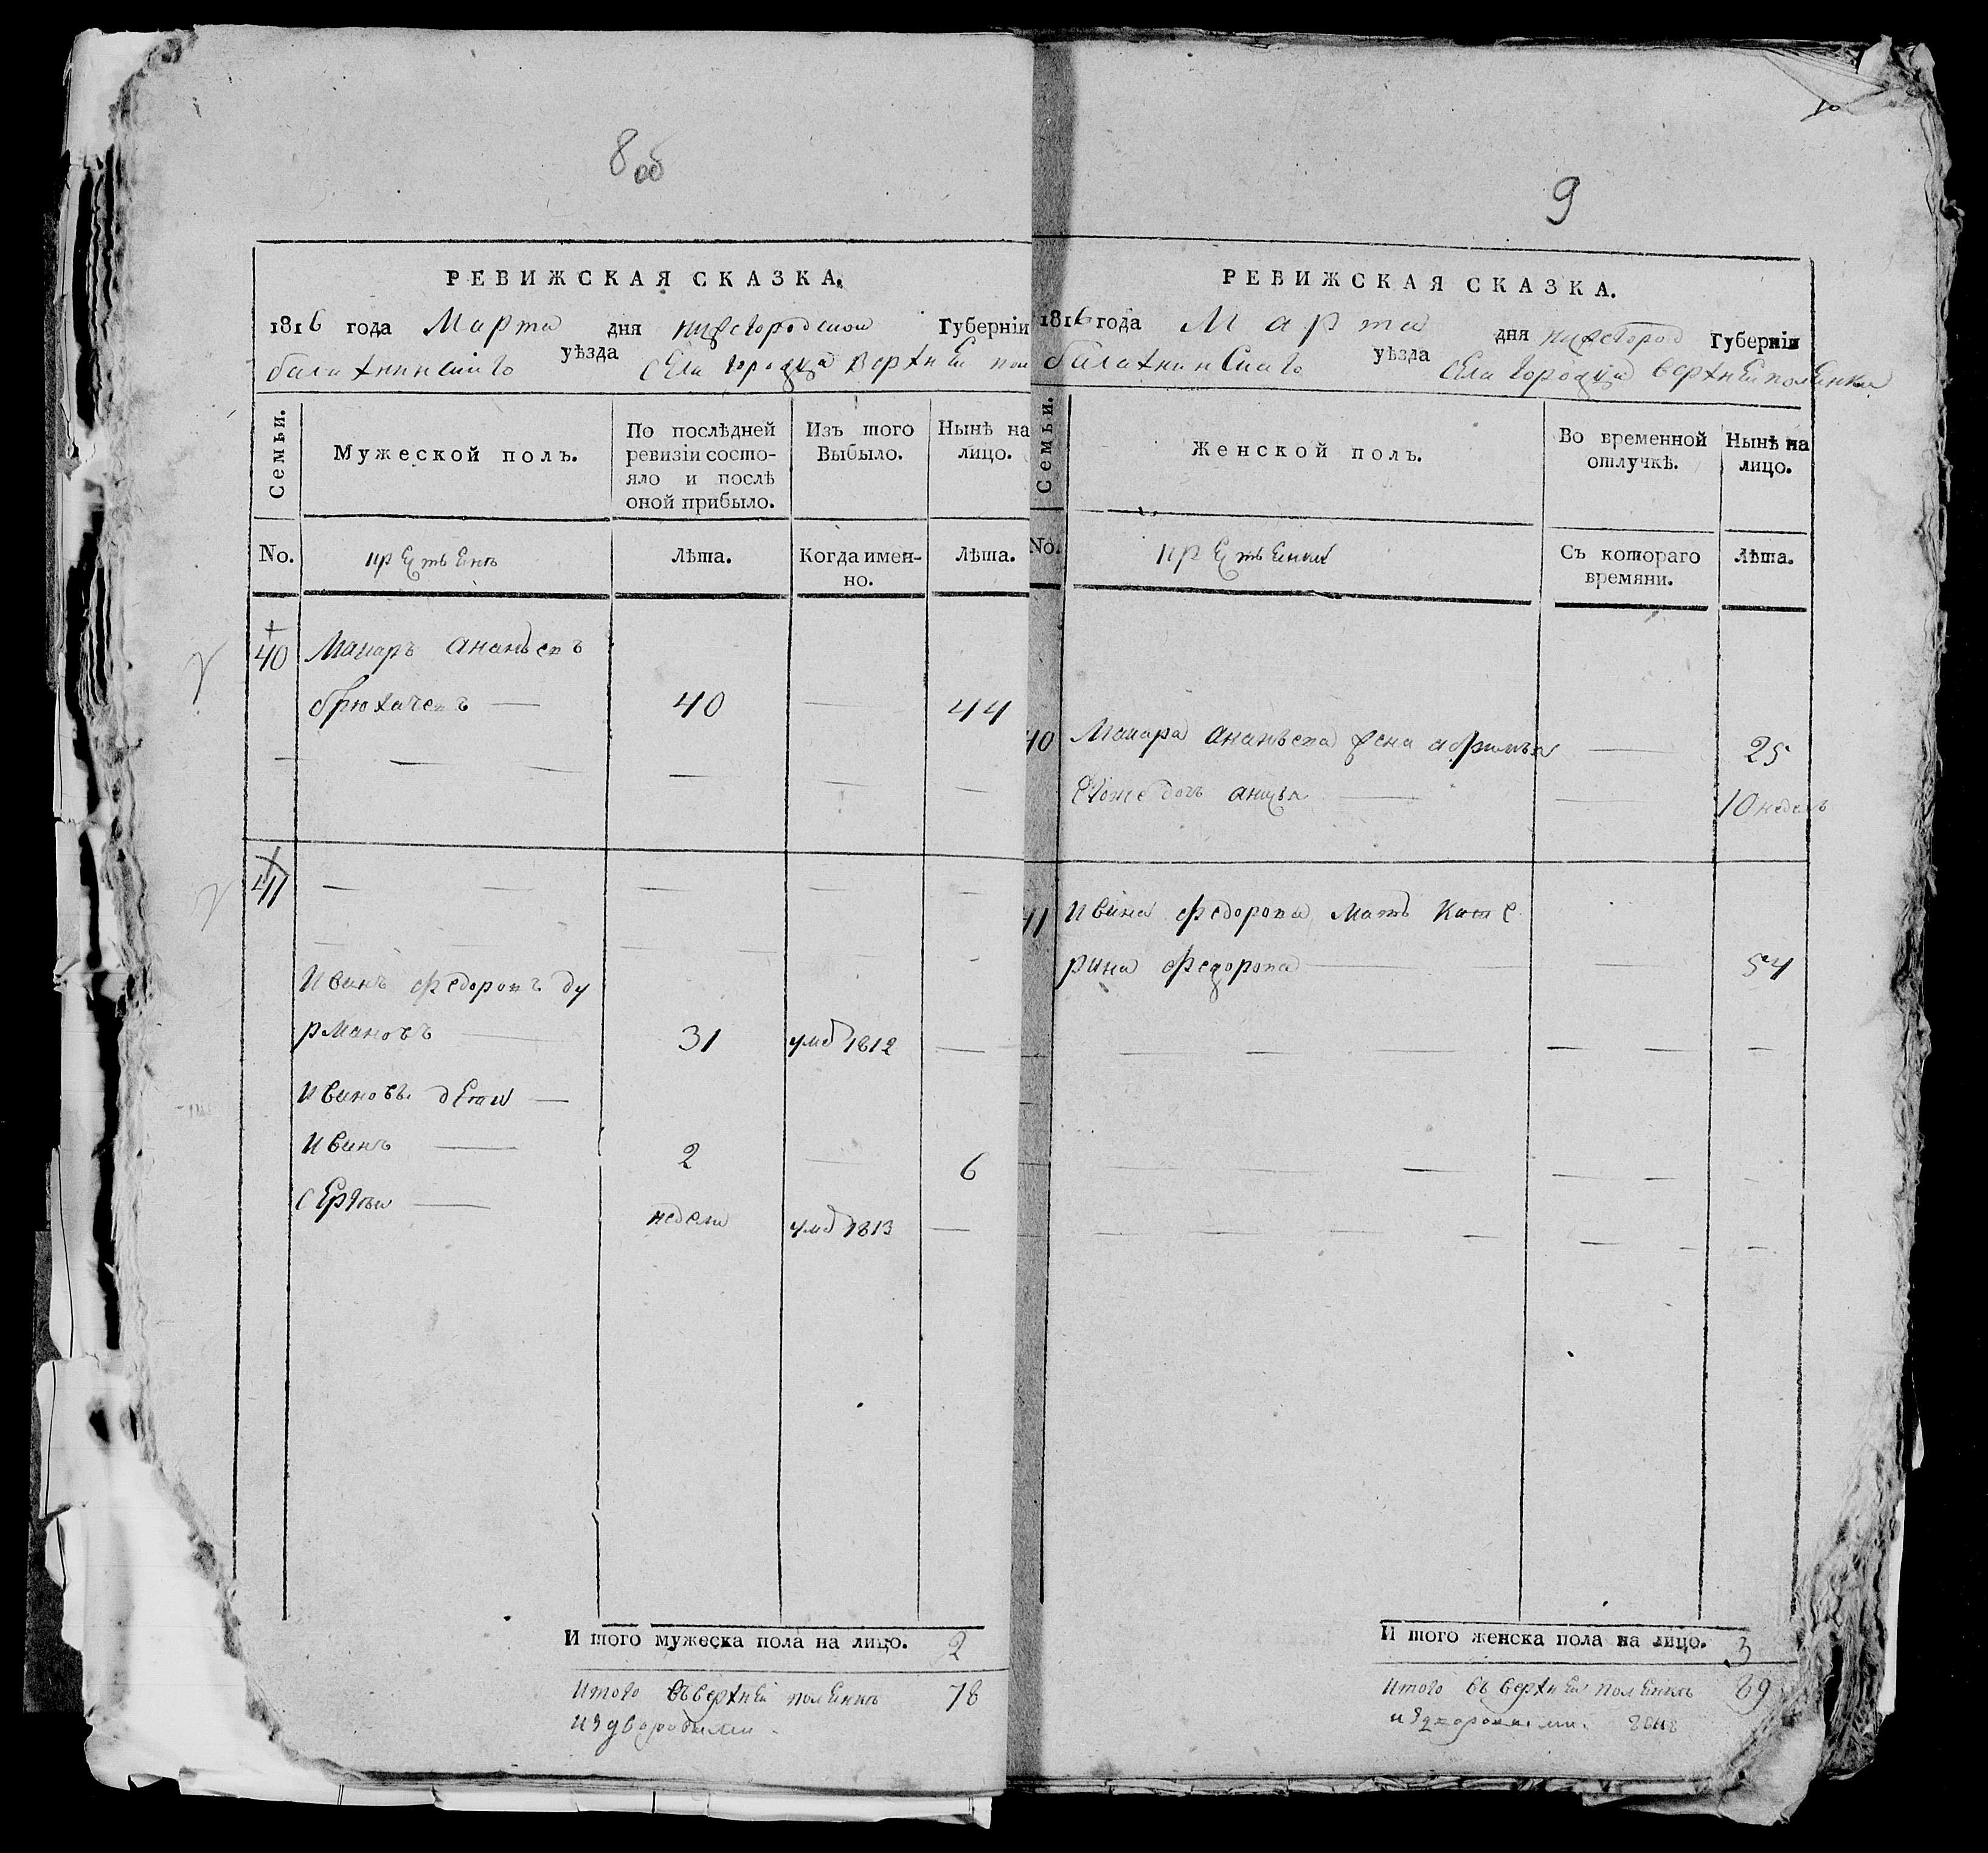 8 об
РЕВИЖСКАЯ СКАЗКА.
1816 года Марта дня нижегородской Губерніи
балахнинскаго уѣзда села городца верхней пол
Семьи.
Мужеской полъ.
По послѣдней ревизіи состояло и послѣ оной прибыло.
Изъ того Выбыло.
Нынѣ на лицо.
No.
крестьянъ
Лѣта.
Когда именно.
Лѣта.
40 Макаръ ананьевъ
брюхачевъ — 40 — 44
41
Иванъ федоровъ ду
рмановъ — 31 умеӏ 1812 —
Ивановы дети —
Иванъ — 2 — 6
Сергѣи — недели умеӏ 1813 —
И того мужеска пола на лицо. 2
Итого въ верхней поленки 78
издворовыми
9
РЕВИЖСКАЯ СКАЗКА.
1816 года Марта дня нижегород Губерніи
балахнинскаго уѣзда села городца верхнеи поленки
Семьи.
Женской полъ.
Во временной отлучкѣ.
Нынѣ на лицо.
No.
крестьянки
Съ котораго времяни.
Лѣта.
40 Макара ананьева жена — 25
дочь анна — — 10 недель
41 Ивана федорова мать Кате
рина федорова — — 54
И того женска пола на лицо. 3
Итого въ верхнеи поленки 89
издворовыми.